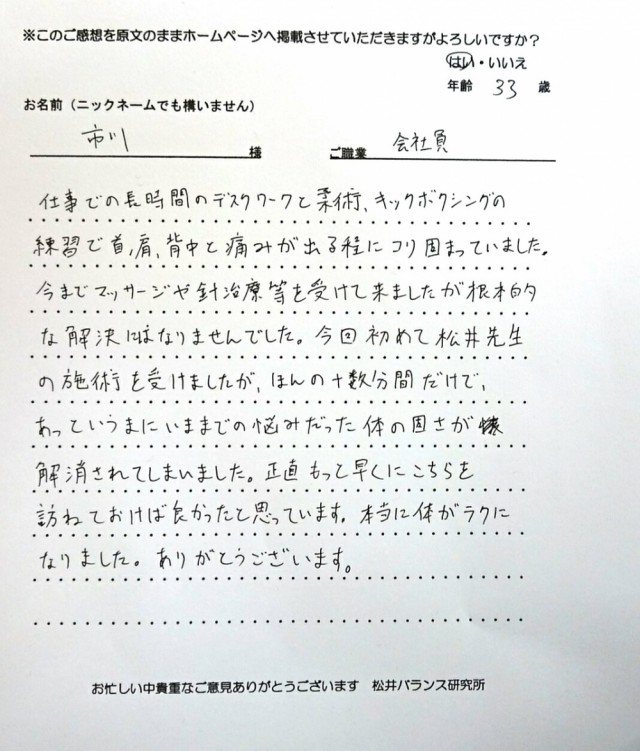 ※このご感想を原文のままホームページへ掲載させていただきますがよろしいですか？
はい・いいえ
年齢 33 歳
お名前（ニックネームでも構いません）
市川 様 ご職業 会社員
仕事での長時間のデスクワークと柔術、キックボクシングの
練習で首、肩、背中と痛みが出る程にコリ固まっていました。
今までマッサージや針治療等を受けて来ましたが根本的
な解決にはなりませんでした。今回初めて松井先生
の施術を受けましたが、ほんの十数分間だけで、
あっというまにいままでの悩みだった体の固さが
解消されてしまいました。正直もっと早くにこちらを
訪ねておけば良かったと思っています。本当に体がラクに
なりました。ありがとうございます。
お忙しい中貴重なご意見ありがとうございます 松井バランス研究所